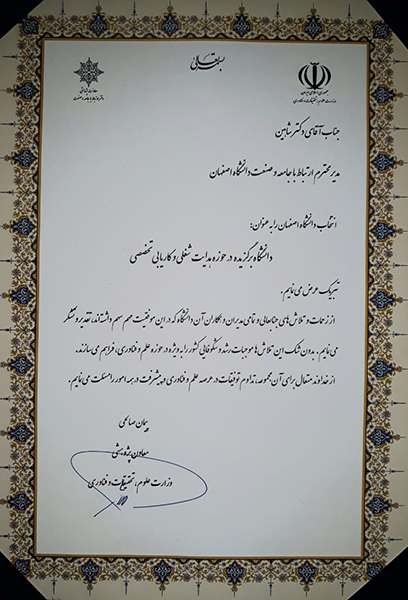 بسمه تعالی
جمهوری اسلامی ایران
وزارت علوم، تحقیقات و فناوری
جناب آقای دکتر شاهین
مدیر محترم ارتباط با جامعه و صنعت دانشگاه اصفهان
انتخاب دانشگاه اصفهان را به عنوان:
دانشگاه برگزیده در حوزه هدایت شغلی و کاریابی تخصصی
تبریک عرض می نمایم.
از زحمات و تلاش های جنابعالی و تمامی مدیران و همکاران آن دانشگاه که در این موفقیت مهم سهم داشته اند، تقدیر و تشکر
می نمایم. بدون شک این تلاش ها موجبات رشد و شکوفایی کشور را به ویژه در حوزه علم و فناوری، فراهم می سازند.
از خداوند متعال برای آن مجموعه، تداوم توفیقات در عرصه علم و فناوری و پیشرفت در همه امور را مسئلت می نمایم.
پیمان صالحی
معاون پژوهشی
وزارت علوم، تحقیقات و فناوری